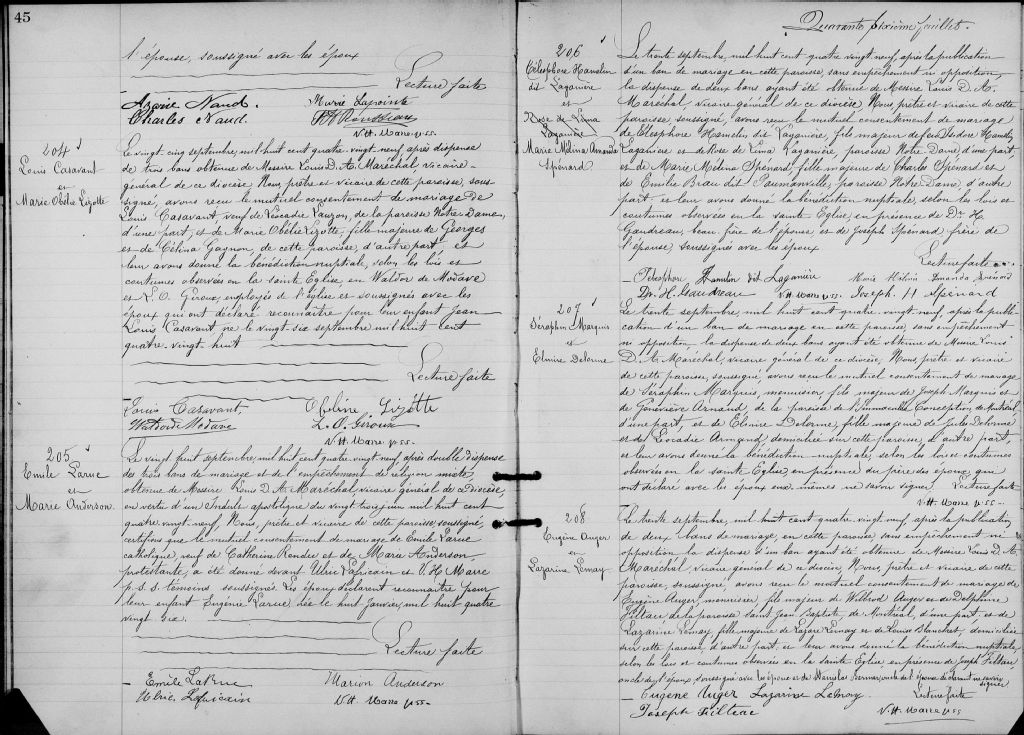 45
l'épouse, soussigné avec les époux
Lecture faite
Azarie Naud. Marie Lapointe
Charles Naud.
V.H. Marre p.s.s.
204
Louis Casavant
et
Marie Obéline Lizotte
Le vingt cinq septembre, mil huit cent quatre vingt neuf, après dispense
de trois bans obtenue de Messire Louis D. A. Maréchal, vicaire
général de ce diocèse Nous, prêtre et vicaire de cette paroisse, sous-
signé, avons reçu le mutuel consentement de mariage de
Louis Casavant veuf de Léocadie Lauzon, de la paroisse Notre Dame,
d'une part, et de Marie Obéline Lizotte, fille majeure de Georges
et de Célina Gagnon, de cette paroisse, d'autre part, et
leur avons donné la bénédiction nuptiale, selon les lois et
coutumes observées en la sainte Eglise, en Waldor de Modave
et L. O. Giroux, employés de l'église et soussignés avec les
époux qui ont déclaré reconnaître pour leur enfant Jean
Louis Casavant né le vingt six septembre mil huit cent
quatre-vingt-huit
Lecture faite
Louis Casavant, Obéline Lizotte
Waldor de Modave L. O. Giroux
V.H. Marre p.s.s.
205
Emile Larue
et
Marie Anderson
Le vingt huit septembre, mil huit cent quatre vingt neuf après double dispense
des trois bans de mariage et de l'empêchement de religion mixte
obtenue de Messire Louis D. A. Maréchal, vicaire général de ce diocèse
en vertu d'un Indult apostolique du vingt trois juin mil huit cent
quatre vingt-neuf, Nous, prêtre et vicaire de cette paroisse, soussigné,
certifions que le mutuel consentement de mariage de Emile Larue
catholique, veuf de Catherine Rondeu et de Marie Anderson
protestante, a été donné devant Ulric Lafricain et V. H. Marre
p.s.s. témoins soussignés. Les époux déclarent reconnaître pour
leur enfant Eugène Larue, née le huit Janvier, mil huit quatre
vingt six.
Lecture faite
Emile LaRue Marion Anderson
Ulric Lafricain V.H. Marre p.s.s.
Quarante sixième feuillet.
206
Télesphore Hamelin
dit Laganière
et
Rose de Lima
Laganière
Marie Melina Amanda
Spénard
Le trente septembre, mil huit cent quatre vingt neuf, après la publication
d'un ban de mariage en cette paroisse, sans empêchement ni opposition,
la dispense de deux bans ayant été obtenue de Messire Louis D. A.
Maréchal vicaire général de ce diocèse Nous, prêtre et vicaire de cette
paroisse, soussigné, avons reçu le mutuel consentement de mariage
de Télesphore Hamelin dit Laganière, fils majeur de feu Isidore Hamelin
Laganière et de Rose de Lima Laganière, paroisse Notre Dame, d'une part,
et de Marie Melina Spénard, fille majeure de Charles Spénard et
de Emilie Brau dit Pommainville, paroisse Notre Dame, d'autre
part, et leur avons donné la bénédiction nuptiale, selon les lois et
coutumes observées en la sainte Eglise, en présence de Dr H.
Gaudreau, beau frère de l'épouse et de Joseph Spénard frère de
l'épouse, soussignés avec les époux
Lecture faite
Telesphore Hamelin dit Laganière Marie Amanda Spénard
Dr. H. Gaudreau V.H. Marre p.s.s. Joseph H Spénard
207
Séraphin Marquis
et
Elmire Delorme
Le trente septembre, mil huit cent quatre vingt neuf, après la publi-
cation d'un ban de mariage en cette paroisse, sans empêchement
ni opposition, la dispense de deux bans ayant été obtenue de Messire Louis
D. A. Maréchal, vicaire général de ce diocèse, Nous, prêtre et vicaire
de cette paroisse, soussigné, avons reçu le mutuel consentement de mariage
de Séraphin Marquis, menuisier, fils majeur de Joseph Marquis et
de Geneviève Arnaud, de la paroisse de l'Immaculée Conception, de Montréal,
d'une part, et de Elmire Delorme, fille majeure de Jules Delorme
et de Léocadie Armand, domiciliée sur cette paroisse, d'autre part,
et leur avons donné la bénédiction nuptiale, selon les lois et coutumes
observées en la sainte Eglise en présence du père des époux qui
ont déclaré avec les époux eux mêmes ne savoir signer. Lecture faite
V.H. Marre p.s.s.
208
Eugène Auger
et
Lazarine Lemay
Le trente septembre, mil huit cent quatre vingt neuf, après la publication
de deux bans de mariage, en cette paroisse sans empêchement ni
opposition la dispense d'un ban ayant été obtenue de Messire Louis D. A.
Maréchal vicaire général de ce diocèse, Nous, prêtre et vicaire de cette
paroisse, soussigné, avons reçu le mutuel consentement de mariage de
Eugène Auger, menuisier, fils majeur de Wilbrod Auger et de Delphine
Filteau de la paroisse Saint Jean Baptiste, de Montréal, d'une part, et de
Lazarine Lemay, fille majeure de Lazare Lemay et de Louise Blanchet, domiciliée
sur cette paroisse, d'autre part, et leur avons donné la bénédiction nuptiale,
selon les lois et coutumes observées en la sainte Eglise en présence de Joseph Filteau,
oncle de l'époux, soussigné avec les époux et de déclarant ne savoir
signer
Eugène Auger Lazarine Lemay. Lecture faite
Joseph Filteau V.H. Marre p.s.s.